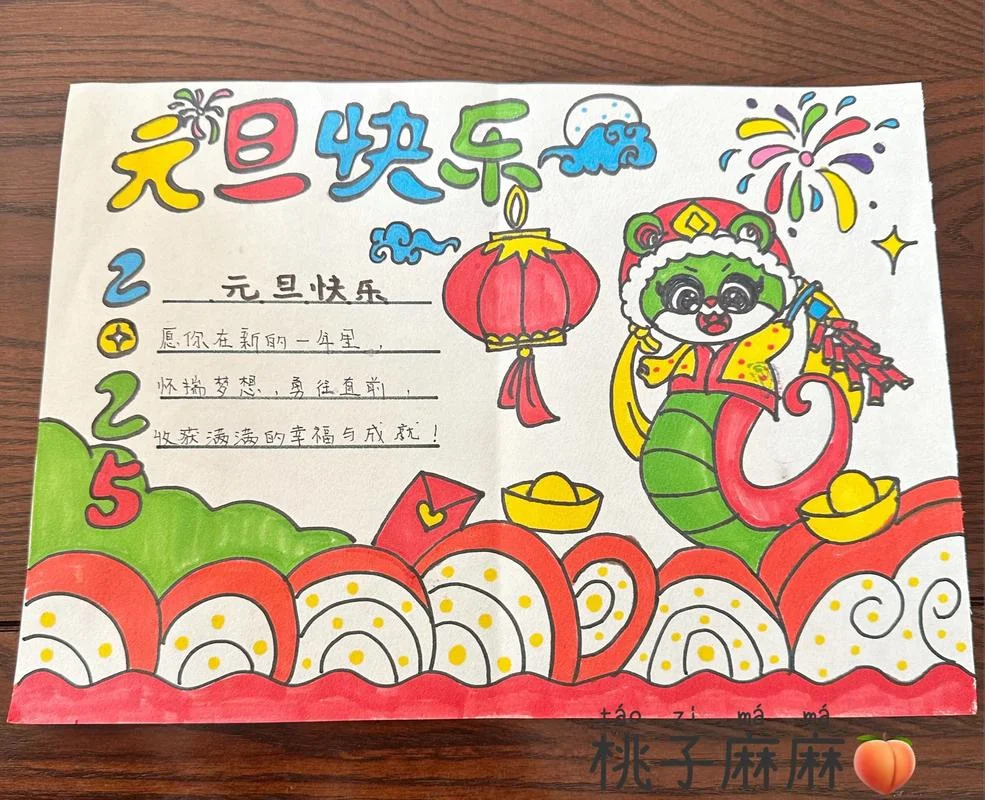 元旦快乐
2025
元旦快乐
愿你在新的一年里,
怀揣梦想,勇往直前,
收获满满的幸福与成就!
táo zi má má
桃子麻麻